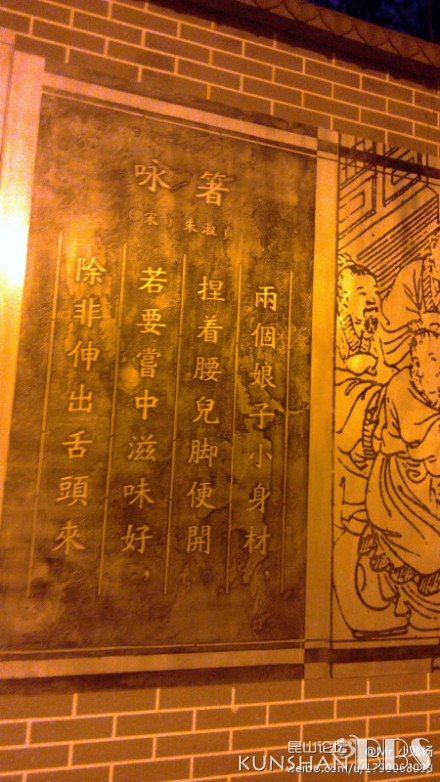 咏箸
(宋)朱淑貞
兩個娘子小身材，
捏着腰兒脚便開
若要嘗中滋味好，
除非伸出舌頭來
昆山论坛
@Mr_少张扬
KUNSHAN BBS